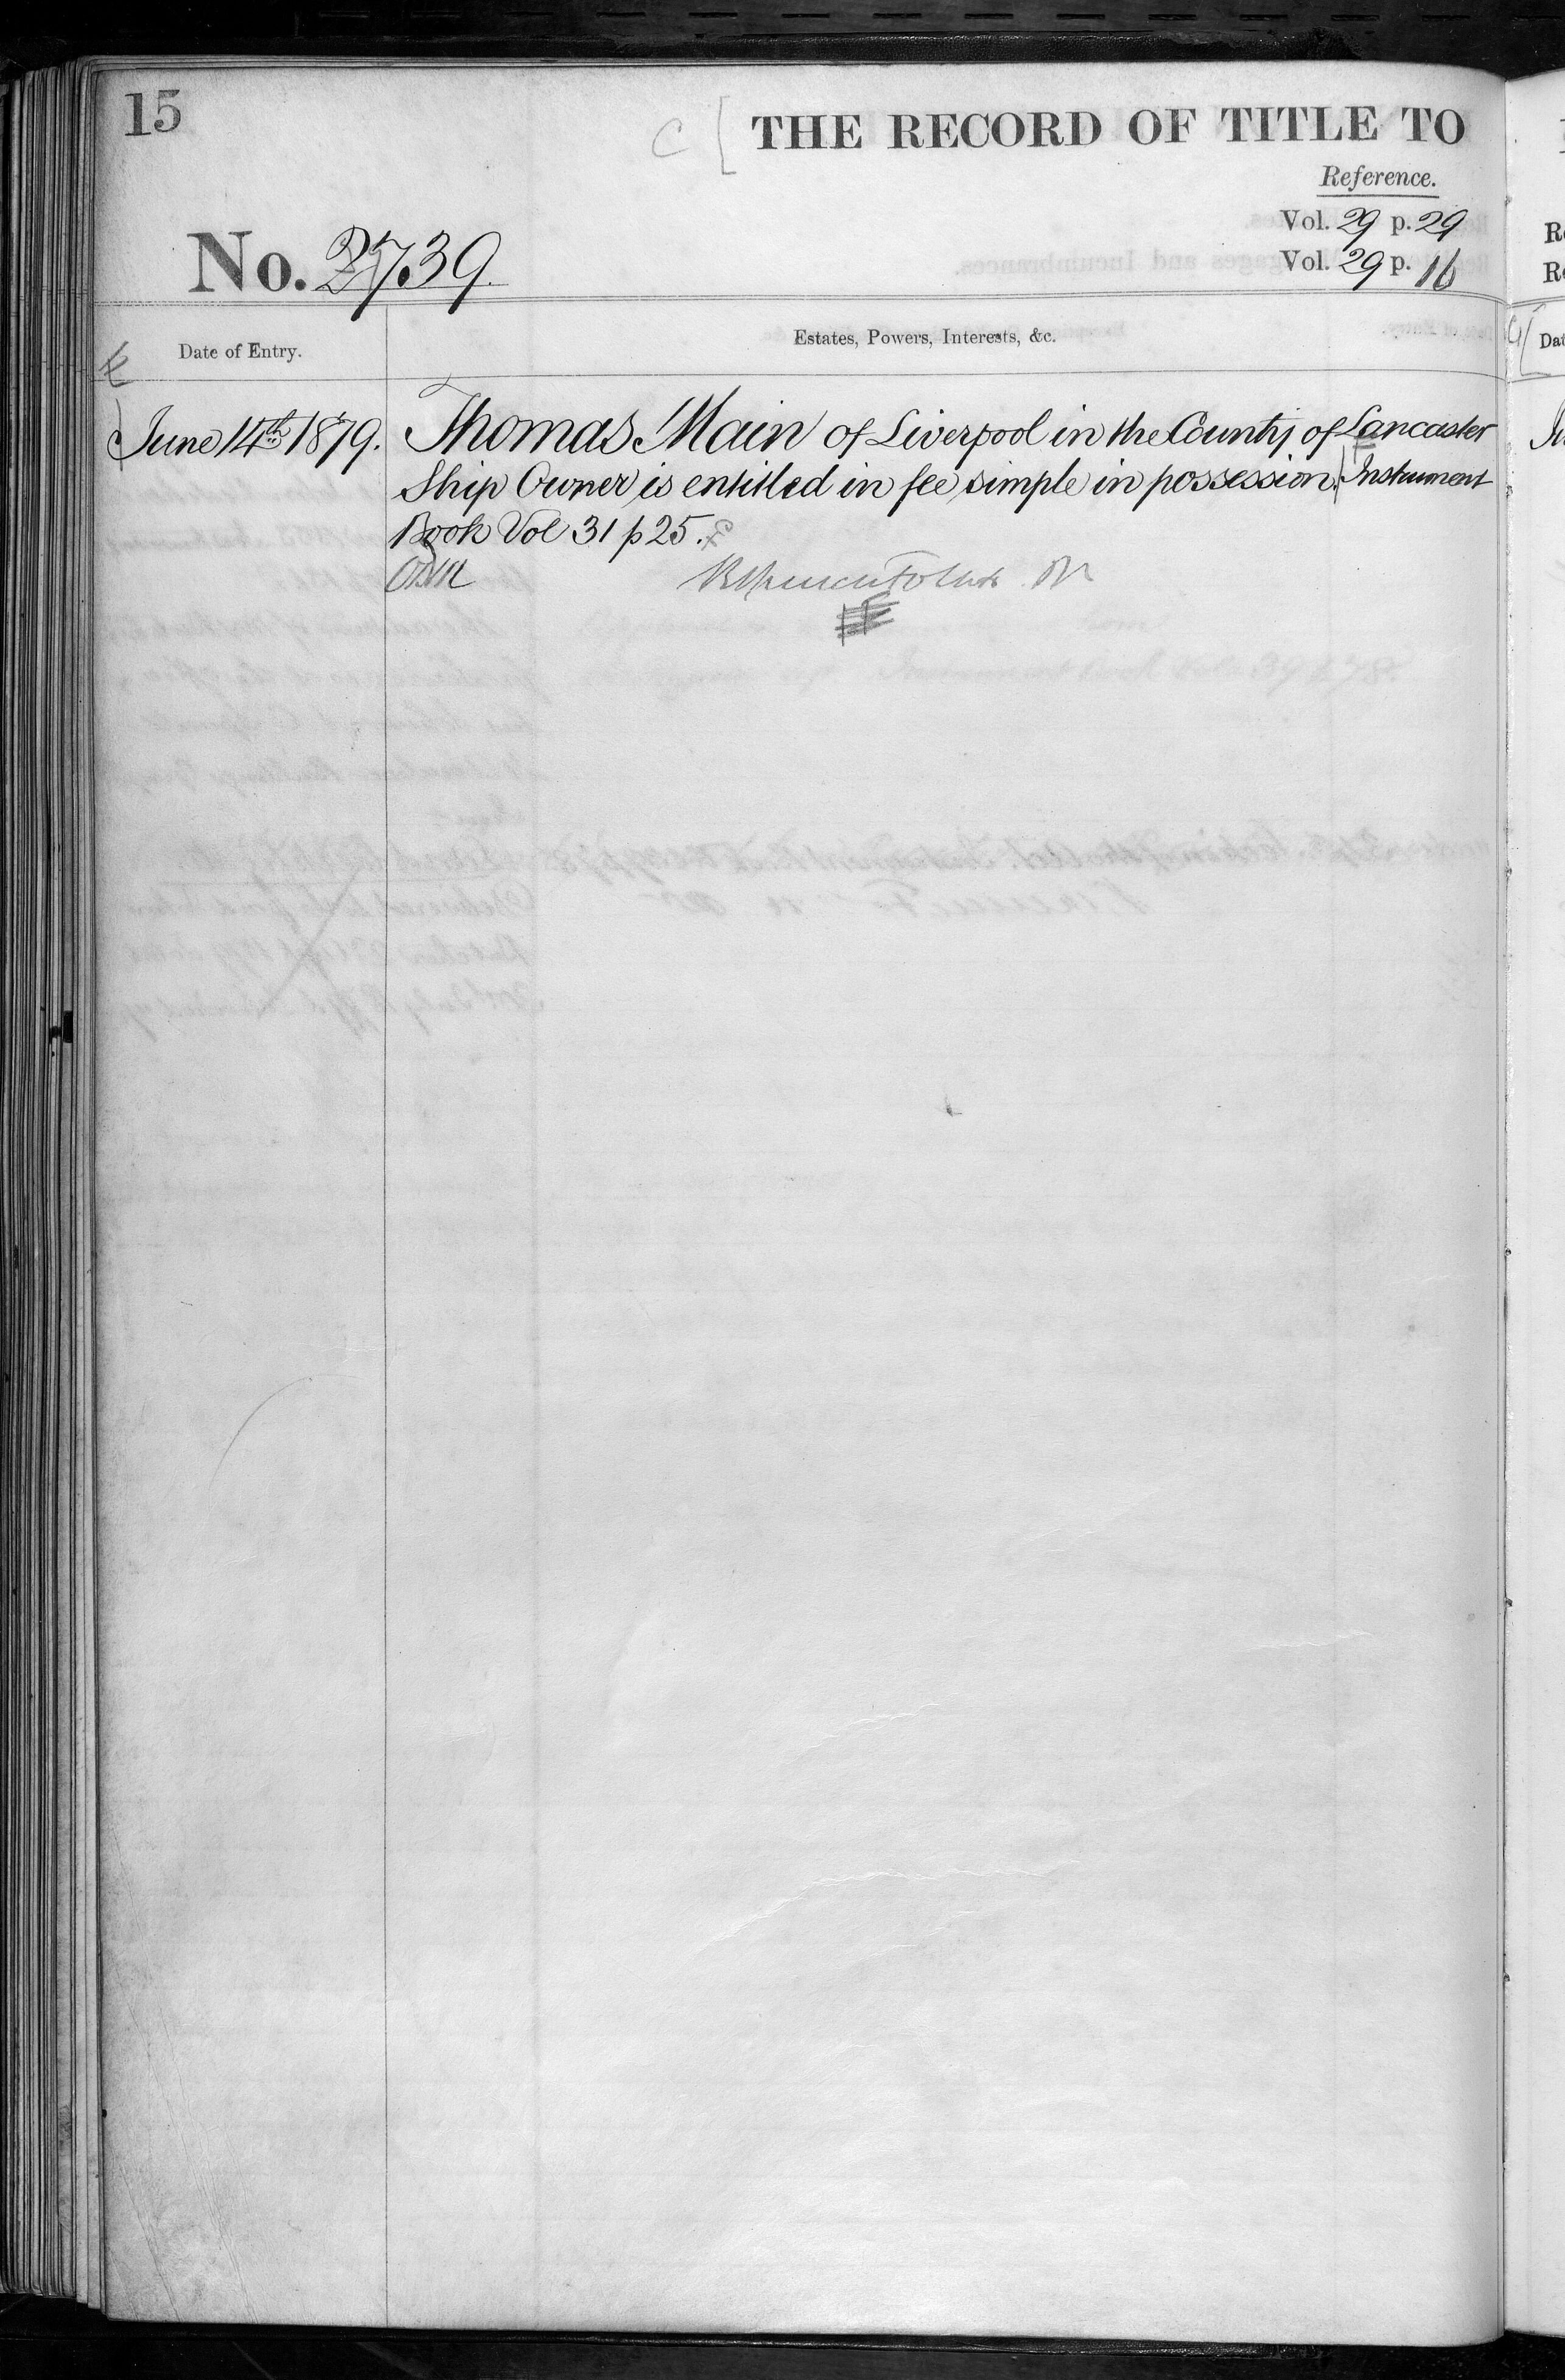 15
C [ THE RECORD OF TITLE TO
Reference.
Vol. 29 p. 29
No. 2739.
Vol. 29 p. 16
Date of Entry.
Estates, Powers, Interests, &c.
June 14th 1879.
Thomas Main of Liverpool in the County of Lancaster
Ship Owner is entitled in fee simple in possession. Instrument
Book Vol 31 p 25.